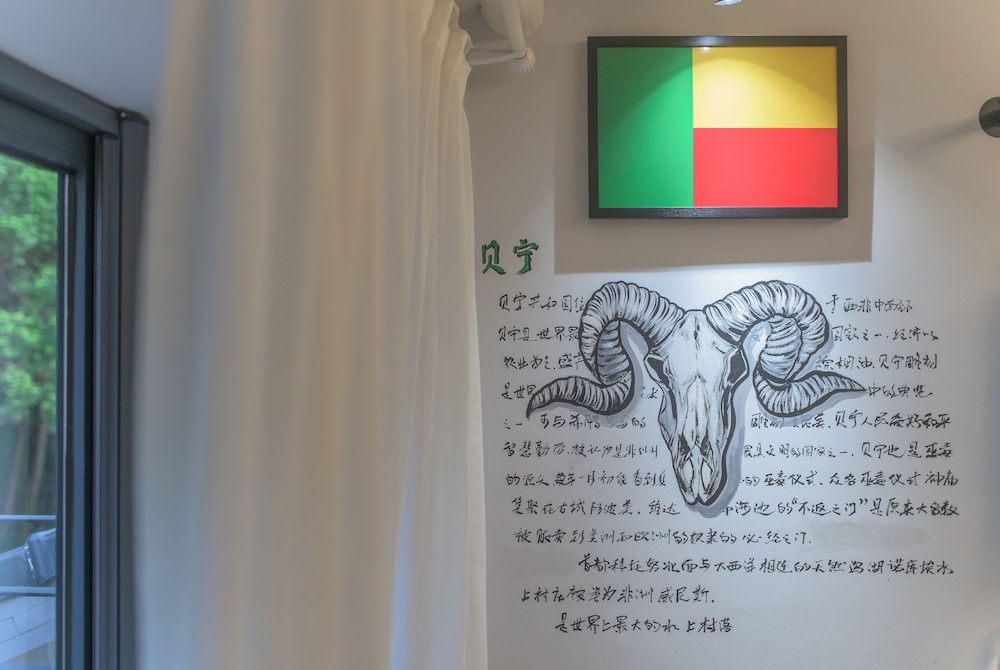 贝宁
贝宁共和国位 于西非中南部
贝宁是世界 国家之一.经济以
农业为主,盛产 棕榈油.贝宁雕刻
是世界 中的典范
之一 可与希腊 的 贝宁人民爱好和平
智慧勤劳.被认为是非洲 文明的国家之一.贝宁也是巫毒
的源头每年一月初能看到 的巫毒仪式.众多巫毒仪式神庙
集聚在古城阿波美.维达 海边的“不返之门”是原来大多数
被贩卖到美洲和欧洲的奴隶的必经之门.
首都科托努北面与大西洋相连的天然泻湖诺库埃水
上村庄被誉为非洲威尼斯.
是世界上最大的水上村落